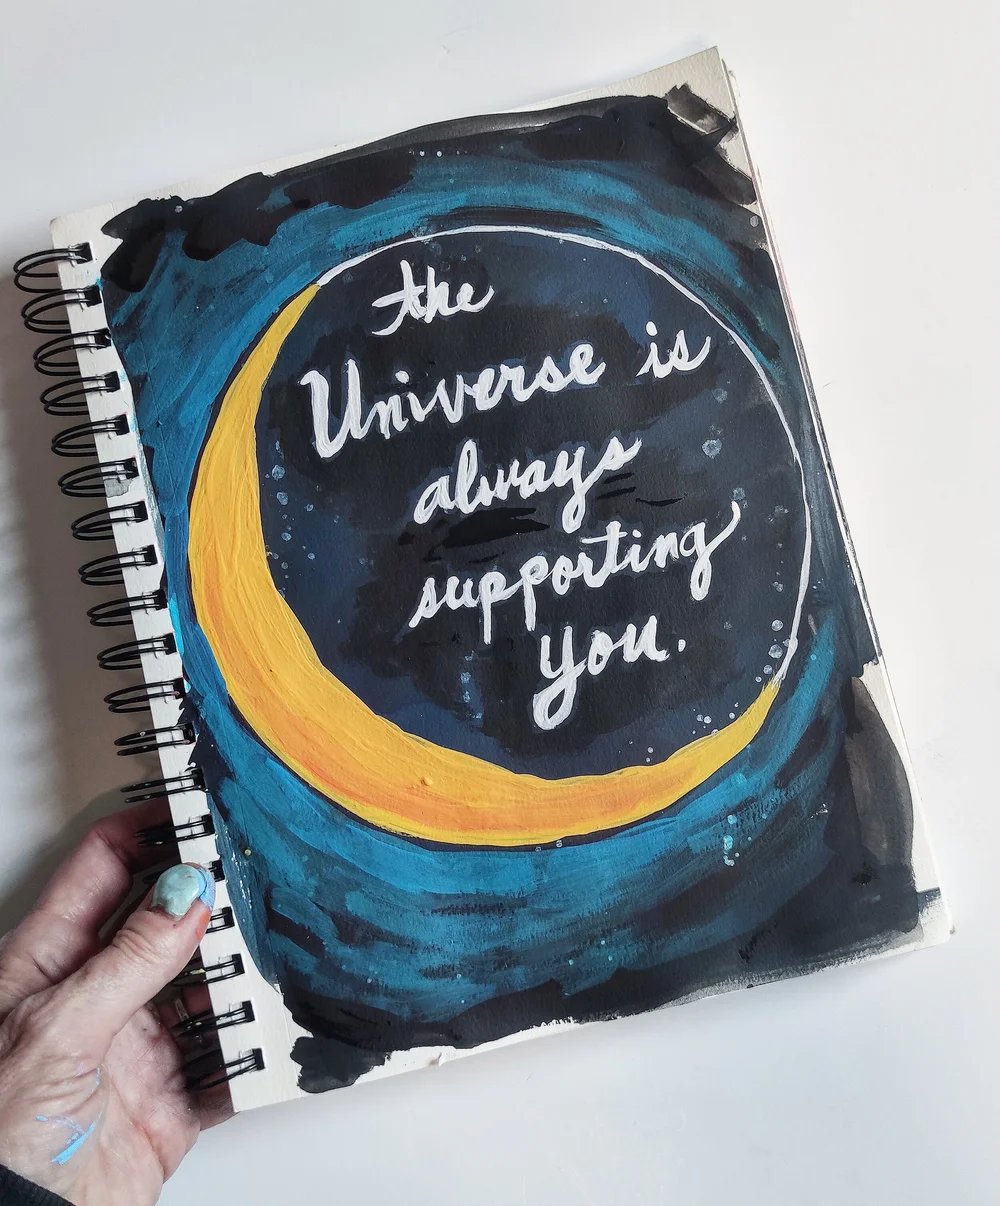 the
Universe is
always
supporting
you.